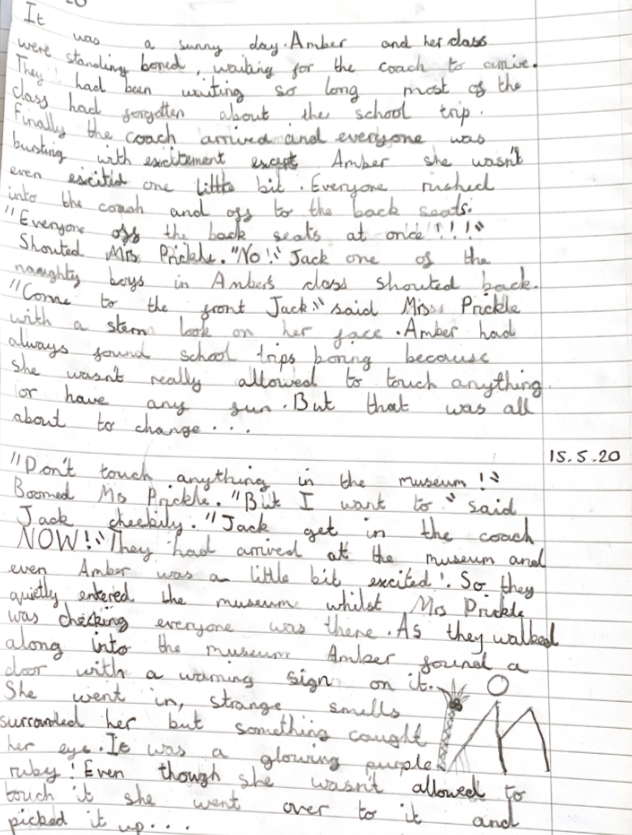 It was a sunny day. Amber and her class
were standing bored, waiting for the coach to arrive.
They had been waiting so long most of the
class had forgotten about the school trip.
Finally the coach arrived and everyone was
busting with excitement except Amber she wasn't
even excited one little bit. Everyone rushed
into the coach and off to the back seats.
"Everyone off the back seats at once!!!"
Shouted Mrs Prickle. "No!" Jack one of the
naughty boys in Ambers class shouted back.
"Come to the front Jack" said Miss Prickle
with a stern look on her face. Amber had
always found school trips boring because
She wasn't really allowed to touch anything
or have any fun. But that was all
about to change...
15.5.20
"Don't touch anything in the museum!"
Boomed Ms Prickle. "But I want to" said
Jack cheekily. "Jack get in the coach
NOW!" They had arrived at the museum and
even Amber was a little bit excited! So they
quietly entered the museum whilst Mrs Prickle
was checking everyone was there. As they walked
along into the museum Amber found a
door with a warning sign on it.
She went in, strange smells
surrounded her but something caught
her eye. It was a glowing purple
ruby! Even though she wasn't allowed to
touch it she went over to it and
picked it up...